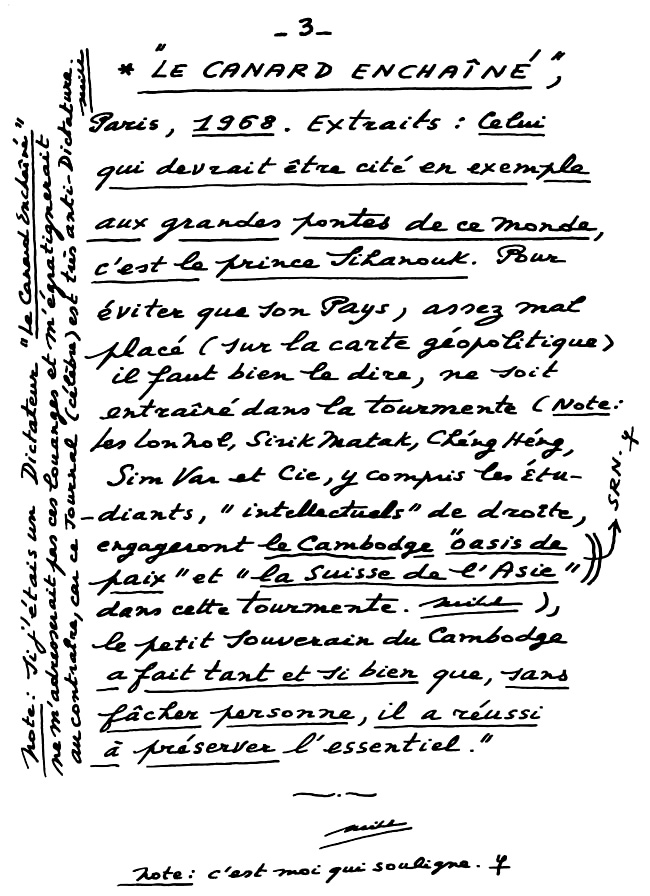 - 3 -
* "LE CANARD ENCHAÎNÉ",
Paris, 1968. Extraits : Celui
qui devrait être cité en exemple
aux grandes pontes de ce monde,
c'est le prince Sihanouk. Pour
éviter que son Pays, assez mal
placé (sur la carte géopolitique)
il faut bien le dire, ne soit
entraîné dans la tourmente (Note:
les Lon Nol, Sirik Matak, Chéng Héng,
Sim Var et Cie, y compris les étu-
-diants, "intellectuels" de droite,
engageront le Cambodge "oasis de
paix" et "la Suisse de l'Asie")
dans cette tourmente. ),
le petit Souverain du Cambodge
a fait tant et si bien que, sans
fâcher personne, il a réussi
à préserver l'essentiel."
Note: c'est moi qui souligne.
SRN.
Note: Si j'étais un Dictateur "Le Canard Enchaîné"
ne m'adresserait pas ces louanges et m'égratignerait
au contraire, car ce Journal (célèbre) est très anti-Dictature.